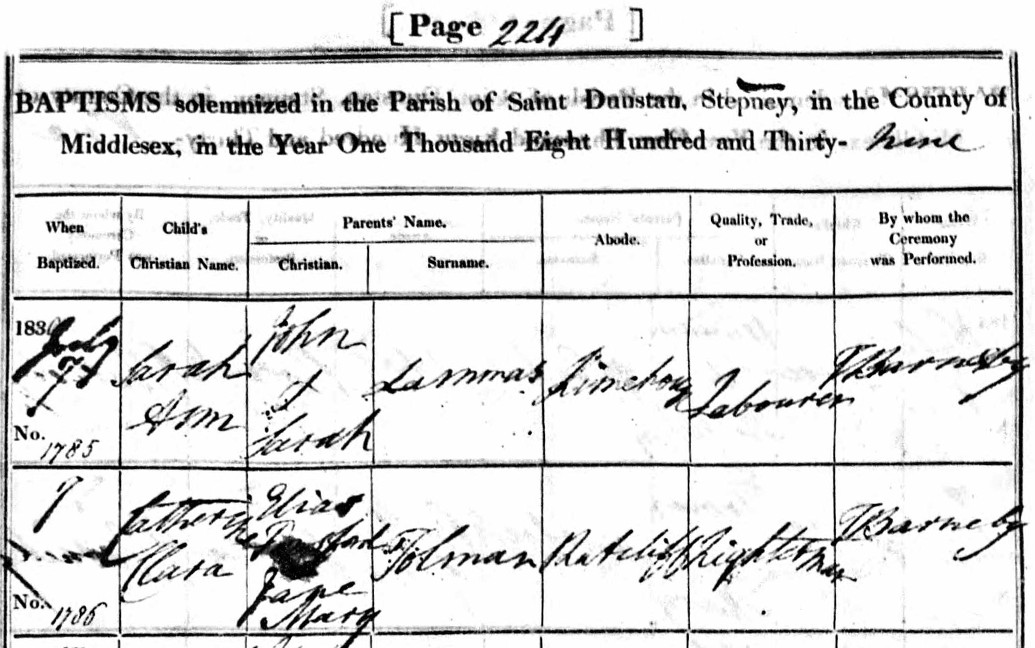 [ Page 224 ]
BAPTISMS solemnized in the Parish of Saint Dunstan, Stepney, in the County of
Middlesex, in the Year One Thousand Eight Hundred and Thirty- nine
When Baptized.
Child's Christian Name.
Parents' Name.
Christian.
Surname.
Abode.
Quality, Trade, or Profession.
By whom the Ceremony was Performed.
1839
July
7
No. 1785
Sarah
Ann
John
&
Sarah
Lammas
Limehouse
Labourer
TBarneby
7
No. 1786
Catherine
Clara
Elias
Jane
Mary
Tolman
Ratcliff
Lighterman
TBarneby